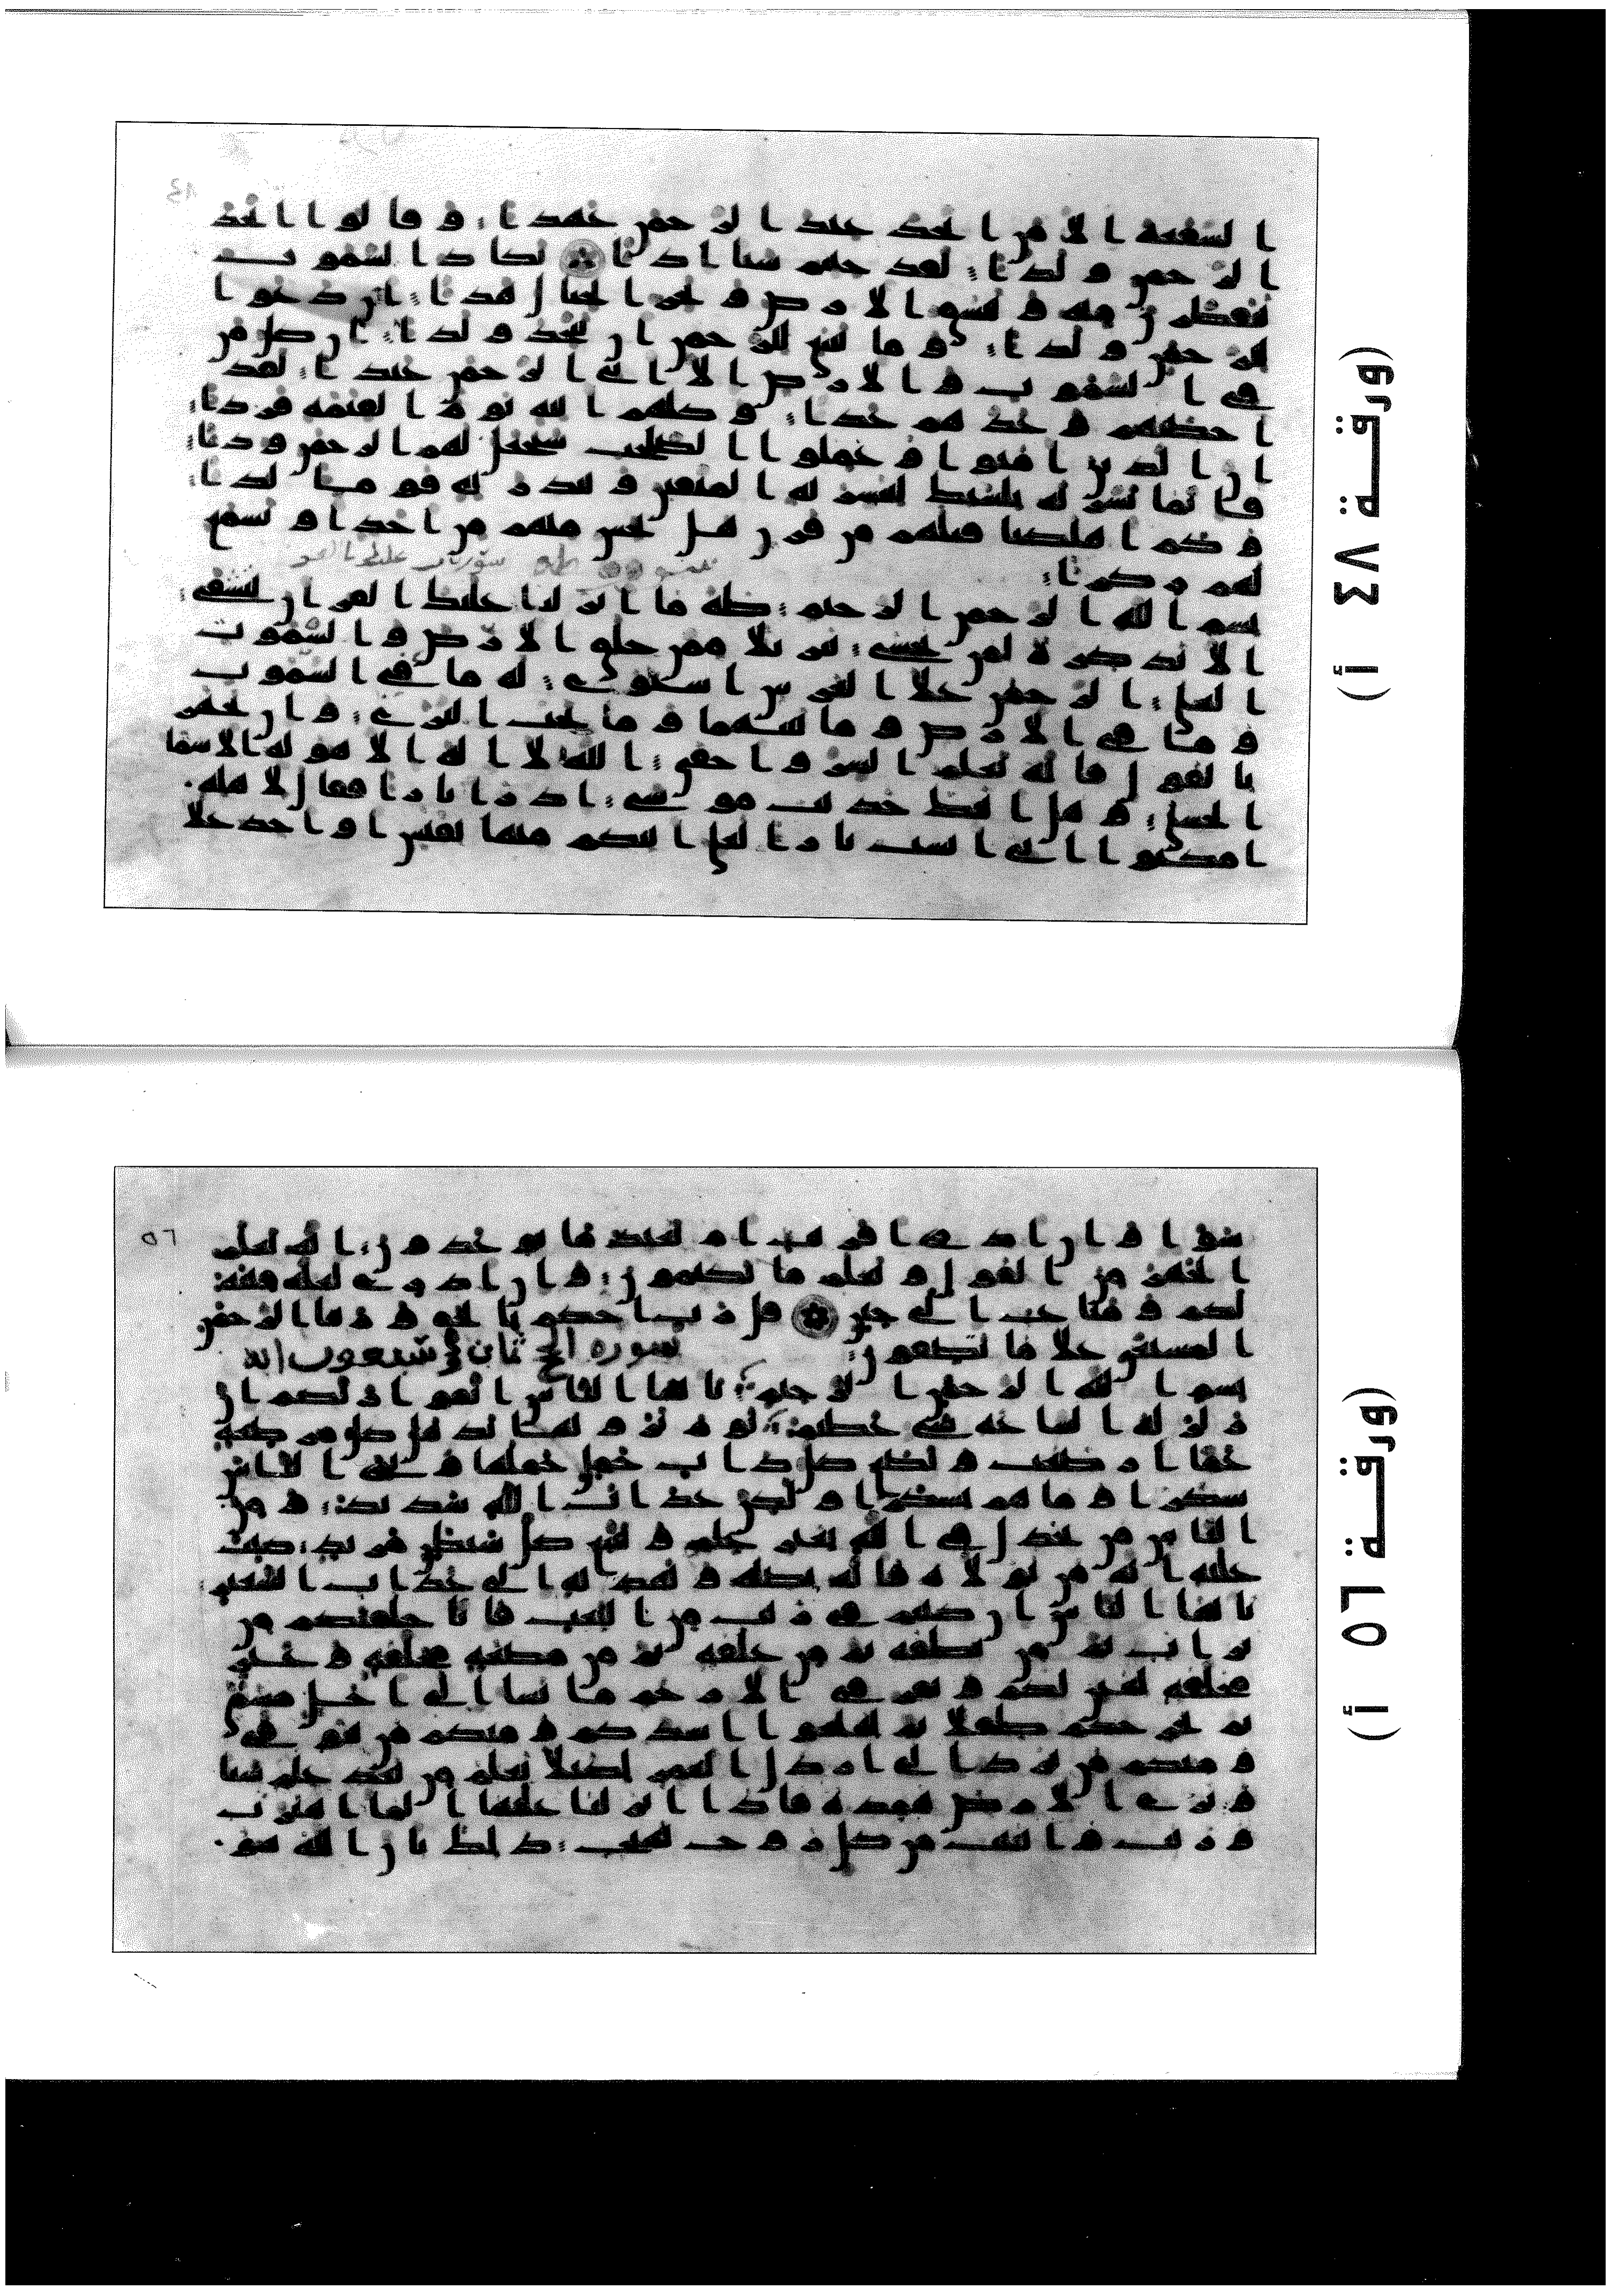 (ورقة ٤٨ أ)
٤٨
ا لشفعة الا من اتخذ عند الرحمن عهدا وقالوا اتخذ
الرحمن ولدا لقد جئتم شيا ادا تكاد السموت
يتفطرن منه وتنشق الارض وتخر الجبال هدا ان دعوا
للرحمن ولدا وما ينبغي للرحمن ان يتخذ ولدا ان كل من
في السموت والارض الا اتي الرحمن عبدا لقد
احصيهم وعدهم عدا وكلهم اتيه يوم القيمة فردا
ان الذين امنوا وعملوا الصلحت سيجعل لهم الرحمن ودا
فانما يسرنه بلسنك لتبشر به المتقين وتنذر به قوما لدا
وكم اهلكنا قبلهم من قرن هل تحس منهم من احد او تسمع
لهم ركزا
بسم الله الرحمن الرحيم طه ما انزلنا عليك القران لتشقى
الا تذكرة لمن يخشى تنزيلا ممن خلق الارض والسموت
العلى الرحمن على العرش استوى له ما في السموت
وما في الارض وما بينهما وما تحت الثرى وان تجهر
بالقول فانه يعلم السر واخفى الله لا اله الا هو له الاسما
الحسنى وهل اتيك حديث موسى اذ را نارا فقال لاهله
امكثوا اني انست نارا لعلي اتيكم منها بقبس او اجد على
(ورقة ٥٦ أ)
٥٦
سوا وان ادري اقريب ام بعيد ما توعدون انه يعلم
الجهر من القول ويعلم ما تكتمون وان ادري لعله فتنة
لكم ومتاع الى حين قل رب احكم بالحق وربنا الرحمن
المستعن على ما تصفون سورة الحج ثمان وسبعون اية
بسم الله الرحمن الرحيم يايها الناس اتقوا ربكم ان
زلزلة الساعة شي عظيم يوم ترونها تذهل كل مرضعة
عما ارضعت وتضع كل ذات حمل حملها وترى الناس
سكرى وما هم بسكرى ولكن عذاب الله شديد ومن
الناس من يجدل في الله بغير علم ويتبع كل شيطن مريد كتب
عليه انه من تولاه فانه يضله ويهديه الى عذاب السعير
يايها الناس ان كنتم في ريب من البعث فانا خلقنكم من
تراب ثم من نطفة ثم من علقة ثم من مضغة مخلقة وغير
مخلقة لنبين لكم ونقر في الارحام ما نشا الى اجل مسمى
ثم نخرجكم طفلا ثم لتبلغوا اشدكم ومنكم من يتوفى
ومنكم من يرد الى ارذل العمر لكيلا يعلم من بعد علم شيا
وترى الارض هامدة فاذا انزلنا عليها الما اهتزت
وربت وانبتت من كل زوج بهيج ذلك بان الله هو